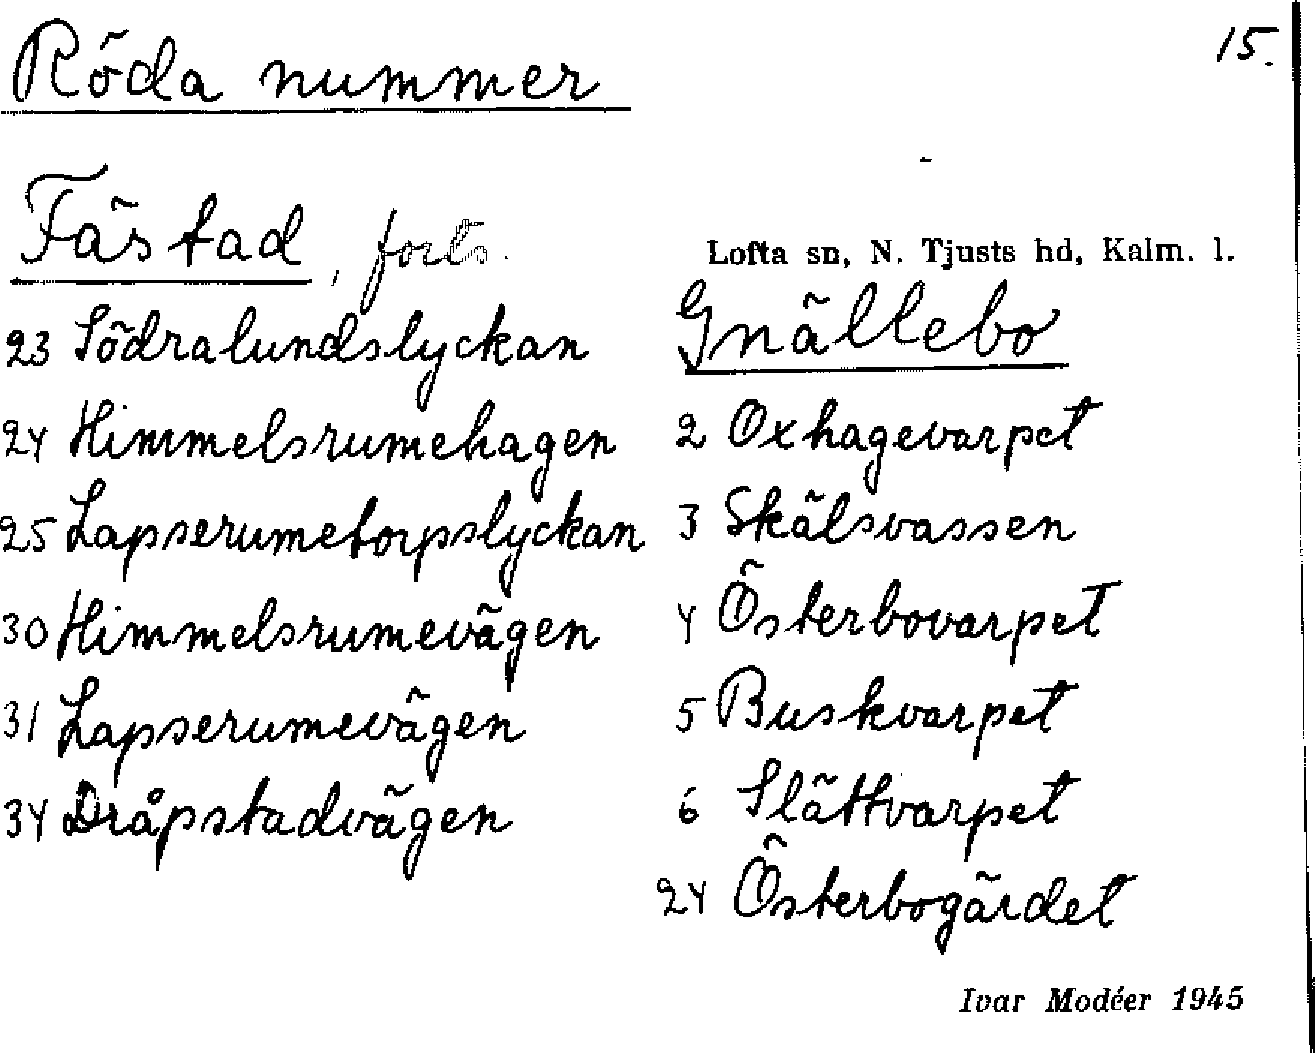 Röda nummer
15.
Fästad, forts.
23 Södralundslyckan
24 Himmelsrumehagen
25 Lapserumetorpslyckan
30 Himmelsrumevägen
31 Lapserumevägen
34 Dråpstadvägen
Lofta sn, N. Tjusts hd, Kalm. l.
Gnällebo
2 Oxhagevarpet
3 Skälsvassen
4 Österbovarpet
5 Buskvarpet
6 Slättvarpet
24 Österbogärdet
Ivar Modéer 1945